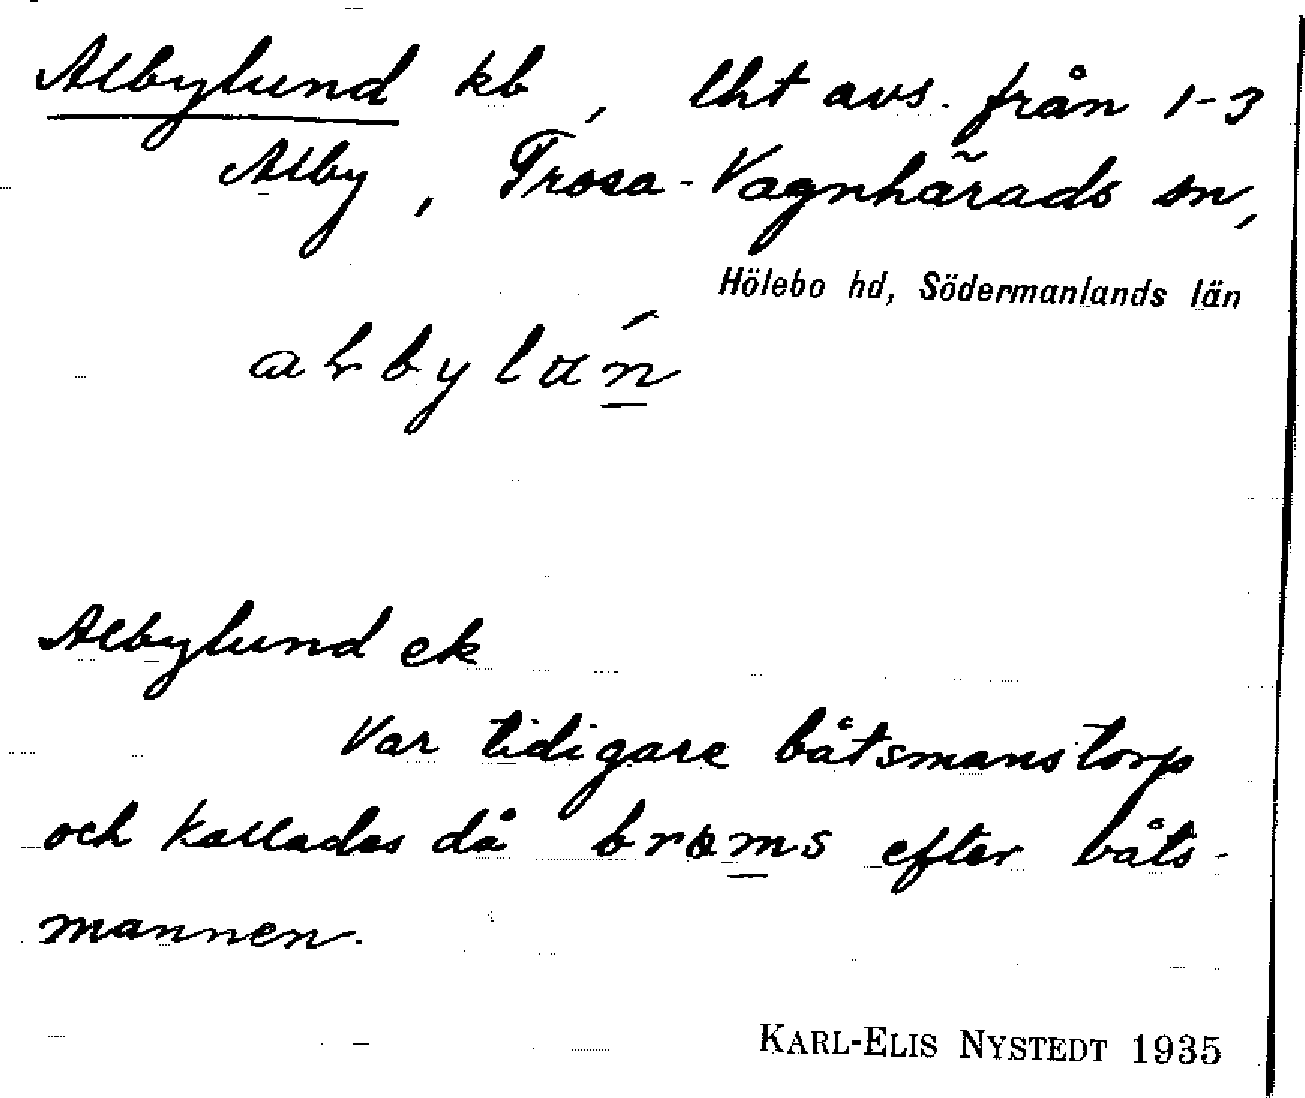 Albylund kb, lht avs. från 1-3
Alby, Trosa-Vagnhärads sn,
Hölebo hd, Södermanlands län
Albylund ek
Var tidigare båtsmanstorp
och kallades då broms efter båts-
mannen.
KARL-ELIS NYSTEDT 1935